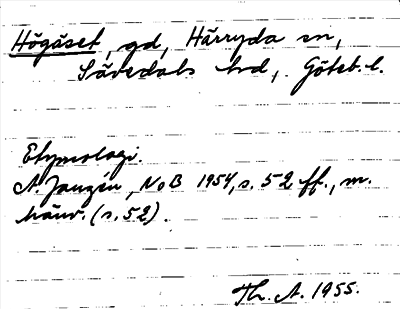 Högåset, gd, Härryda sn,
Sävedals hd, Göteb. l.
Etymologi.
A. Janzén, NoB 1954, s. 52 ff., m.
hänv. (s. 52).
Th. A. 1955.